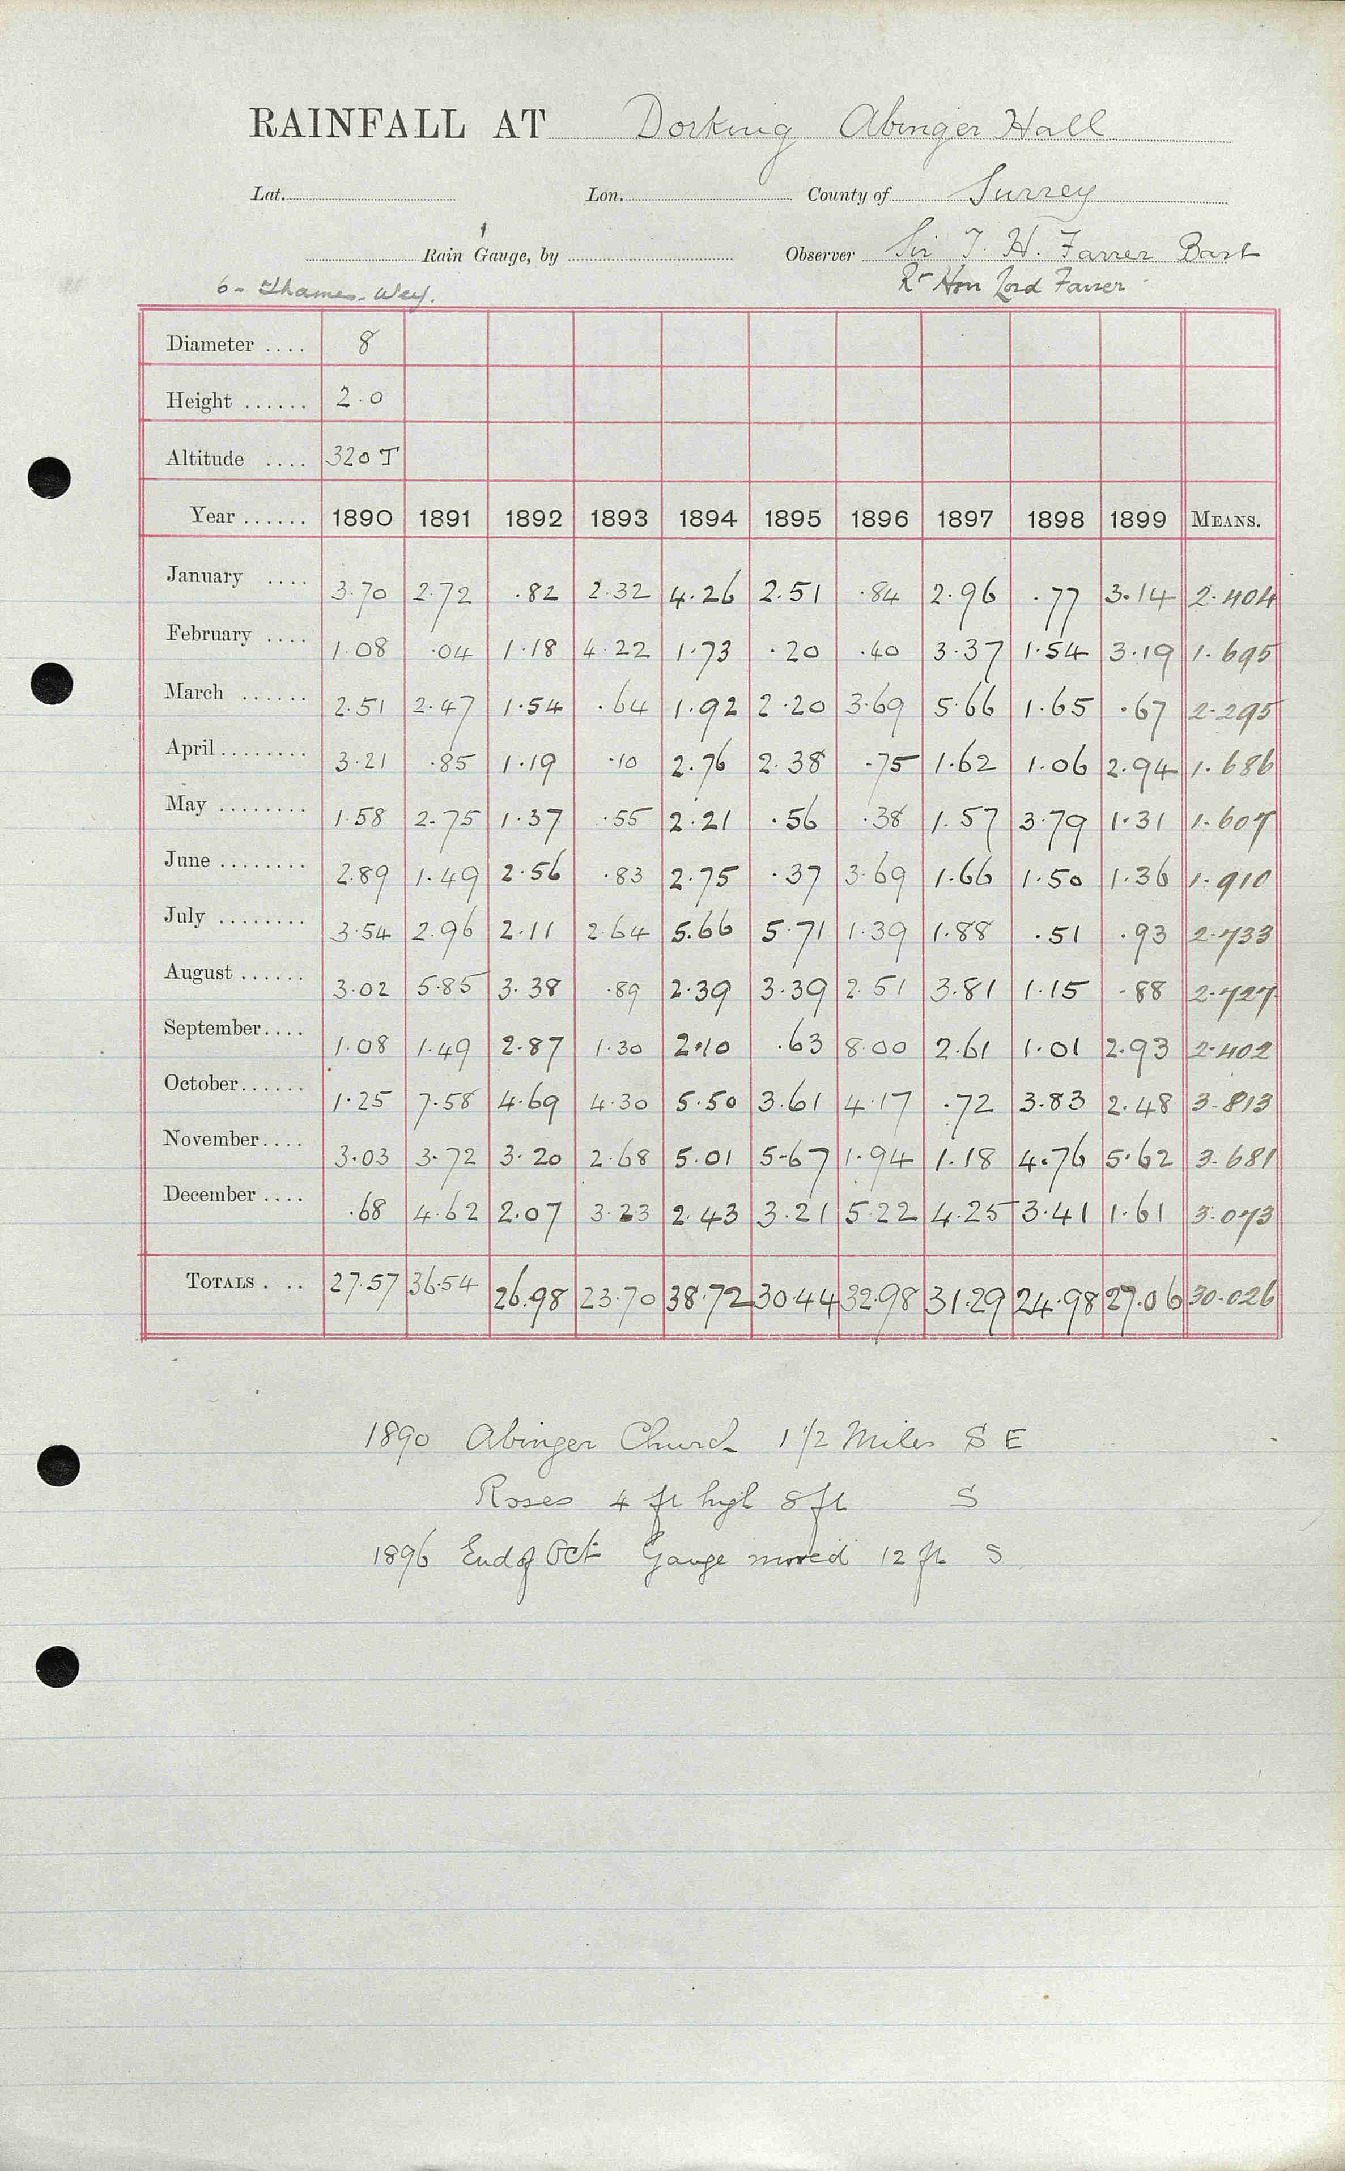 RAINFALL AT Dorking Abinger Hall
Lat. Lon. County of Surrey
Rain Gauge, by Observer Sir T. H. Farrer Bart
6 - Thames - Wey. Rt Hon Lord Farrer
Diameter .... 8
Height ...... 2.0
Altitude .... 320 T
Year ...... 1890 1891 1892 1893 1894 1895 1896 1897 1898 1899 MEANS.
January .... 3.70 2.72 .82 2.32 4.26 2.51 .84 2.96 .77 3.14 2.404
February .... 1.08 .04 1.18 4.22 1.73 .20 .40 3.37 1.54 3.19 1.695
March ...... 2.51 2.47 1.54 .64 1.92 2.20 3.69 5.66 1.65 .67 2.295
April ........ 3.21 .85 1.19 .10 2.76 2.38 .75 1.62 1.06 2.94 1.686
May ........ 1.58 2.75 1.37 .55 2.21 .56 .38 1.57 3.79 1.31 1.607
June ........ 2.89 1.49 2.56 .83 2.75 .37 3.69 1.66 1.50 1.36 1.910
July ........ 3.54 2.96 2.11 2.64 5.66 5.71 1.39 1.88 .51 .93 2.733
August ...... 3.02 5.85 3.38 .89 2.39 3.39 2.51 3.81 1.15 .88 2.727
September .... 1.08 1.49 2.87 1.30 2.10 .63 8.00 2.61 1.01 2.93 2.402
October ...... 1.25 7.58 4.69 4.30 5.50 3.61 4.17 .72 3.83 2.48 3.813
November .... 3.03 3.72 3.20 2.68 5.01 5.67 1.94 1.18 4.76 5.62 3.681
December .... .68 4.62 2.07 3.23 2.43 3.21 5.22 4.25 3.41 1.61 3.073
TOTALS . .. 27.57 36.54 26.98 23.70 38.72 30.44 32.98 31.29 24.98 27.06 30.026
1890 Abinger Church 1 1/2 Miles S E
Roses 4 ft high 8 ft S
1896 End of Oct Gauge moved 12 ft S